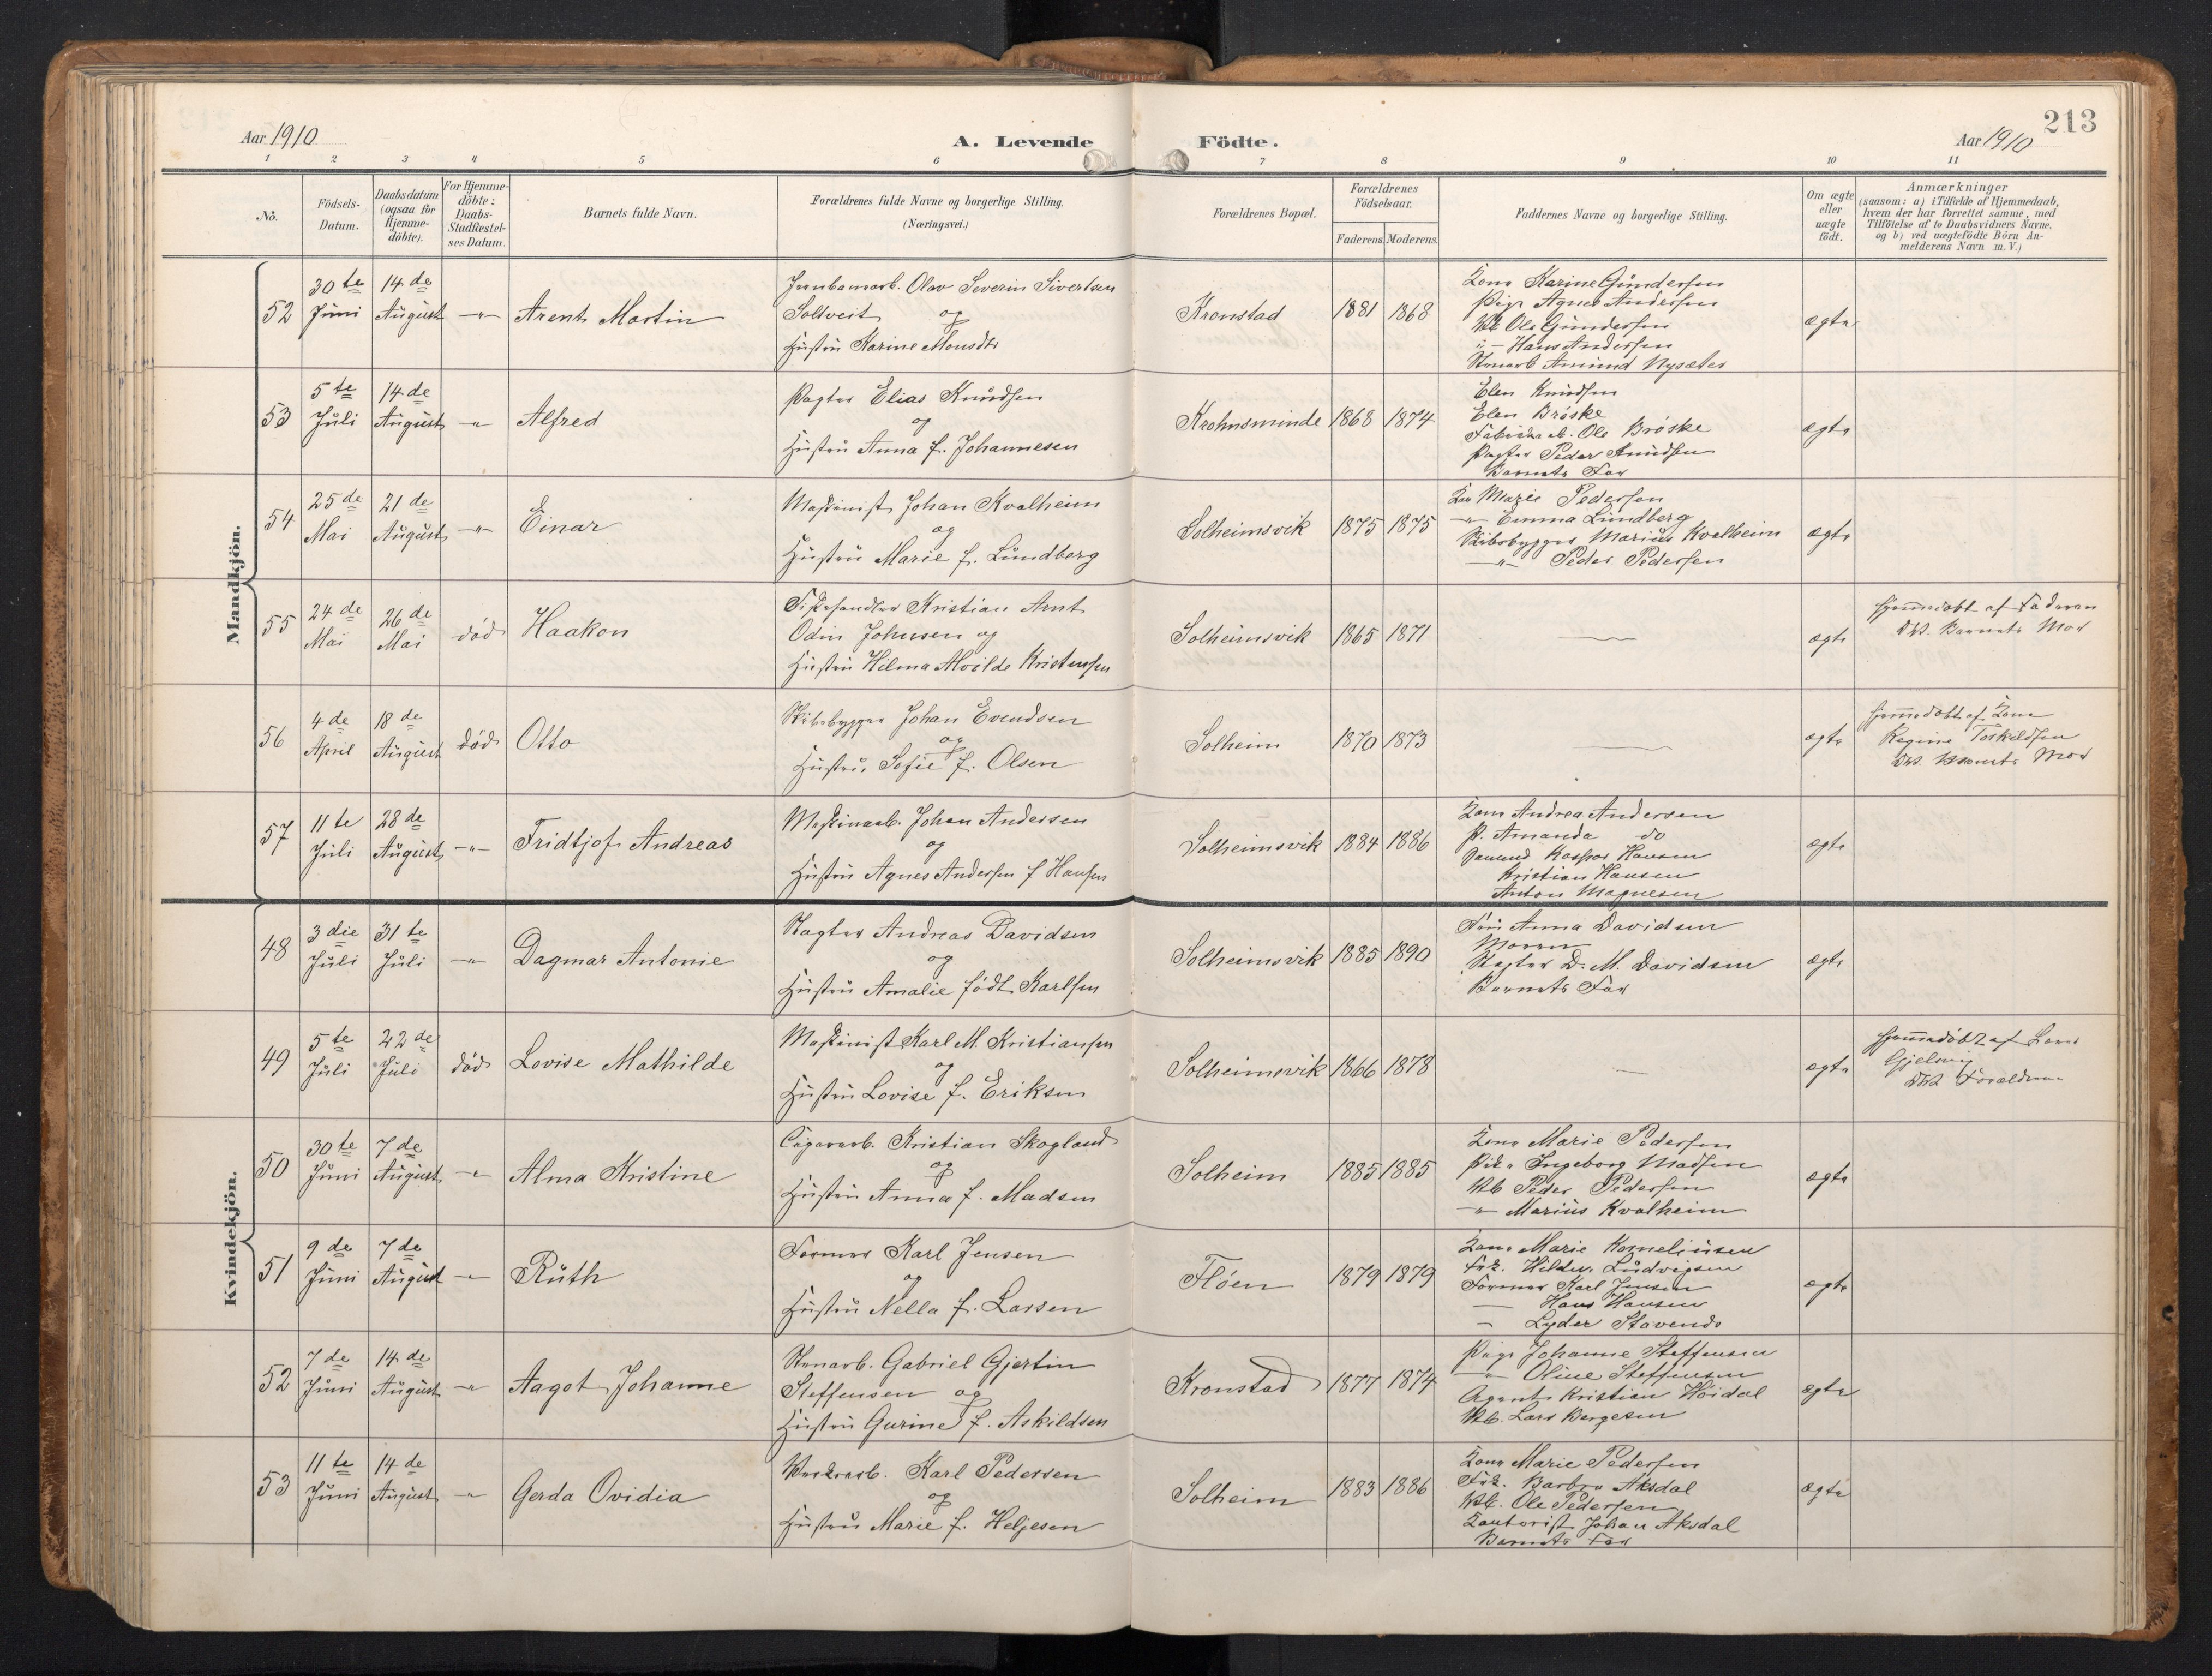 213
Aar 1910
A. Levende Födte.
Aar 1910
1 2 3 4 5 6 7 8 9 10 11
No.
Födsels-
Datum.
Daabsdatum
(ogsaa for
Hjemme-
döbte).
For Hjemme-
döbte:
Daabs-
Stadfæstel-
ses Datum.
Barnets fulde Navn.
Forældrenes fulde Navne og borgerlige Stilling.
(Næringsvei.)
Forældrenes Bopæl.
Forældrenes
Födselsaar.
Faderens. Moderens.
Faddernes Navne og borgerlige Stilling.
Om ægte
eller
uægte
födt.
Anmærkninger
(saasom: a) i Tilfælde af Hjemmedaab,
hvem der har forrettet samme, med
Tilföielse af to Daabsvidners Navne.
og b) ved uægtefödte Börn An-
melderens Navn m. V.)
Mandkjön.
52
30te
Juni
14de
August
-"-
Arent Martin
Jernbanearb. Olav Severin Sivertsen
Soltveit og
Hustru Karine Monsdtr
Kronstad
1881
1868
Kone Karine Gundersen
Pige Agnes Andersen
Vb Ole Gundersen
"- Hans Andersen
Stenarb Amund Nysæter
ægte
53
5te
Juli
14de
August
-"-
Alfred
Slagter Elias Knudsen
og
Hustru Anna f. Johannesen
Krohnsminde
1868
1874
Elen Knudsen
Elen Bröske
Ole Bröske
Slagter Peder Knudsen
Barnets Far
ægte
54
25de
Mai
21de
August
-"-
Einar
Maskinist Johan Kvalheim
og
Hustru Marie f. Lundberg
Solheimsvik
1875
1875
Kone Marie Pedersen
-"- Emma Lundberg
Skibsbygger Marius Kvalheim
-"- Peder Pedersen
ægte
55
24de
Mai
26de
Mai
död
Haakon
Fiskehandler Kristian Arnt
Odin Johnsen og
Hustru Hilma Alvilde Kristensen
Solheimsvik
1865
1871
ægte
hjemmedöbt af Faderen
Barnets Mor
56
4de
April
18de
August
död
Otto
Skibsbygger Johan Evendsen
og
Hustru Sofie f. Olsen
Solheim
1870
1873
ægte
hjemmedöbt af Kone
Regine Torkildsen
Barnets Mor
57
11te
Juli
28de
August
-"-
Fridtjof Andreas
Maskinarb. Johan Andersen
og
Hustru Agnes Andersen f Hansen
Solheimsvik
1884
1886
Kone Andrea Andersen
P. Amanda do
Kaspar Hansen
Kristian Hansen
Anton Magnesen
ægte
Kvindekjön.
48
3die
Juli
31te
Juli
-"-
Dagmar Antonie
Slagter Andreas Davidsen
og
Hustru Amalie födt Karlsen
Solheimsvik
1885
1890
Fru Anna Davidsen
Moren
Slagter D. M. Davidsen
Barnets Far
ægte
49
5te
Juli
22de
Juli
död
Lovise Mathilde
Maskinist Karl M. Kristiansen
og
Hustru Lovise f. Eriksen
Solheimsvik
1866
1878
ægte
hjemmedöbt af
Forældrene
50
30te
Juni
7de
August
-"-
Alma Kristine
Cigararb. Kristian Skogland
og
Hustru Anna f. Madsen
Solheim
1885
1885
Kone Marie Pedersen
Pike Ingeborg Madsen
Vb Peder Pedersen
-"- Marius Kvalheim
ægte
51
9de
Juni
7de
August
-"-
Ruth
Former Karl Jensen
og
Hustru Nella f. Larsen
Flöen
1879
1879
Kone Marie Korneliusen
Frk. Hilda Ludvigsen
Former Karl Jensen
— Hans Hansen
— Lyder Stavendo
ægte
52
7de
Juni
14de
August
-"-
Aagot Johanne
Stenarb. Gabriel Gjertin
Steffensen og
Hustru Gurine f. Askildsen
Kronstad
1877
1874
Pige Johanne Steffensen
-"- Oline Steffensen
Agent Kristian Höidal
Vb. Lars Bergesen
ægte
53
11te
Juni
14de
August
-"-
Gerda Ovidia
Karl Pedersen
og
Hustru Marie f. Heljesen
Solheim
1883
1886
Kone Marie Pedersen
Frk. Barbra Aksdal
Vb. Ole Pedersen
Kontorist Johan Aksdal
Barnets Far
ægte